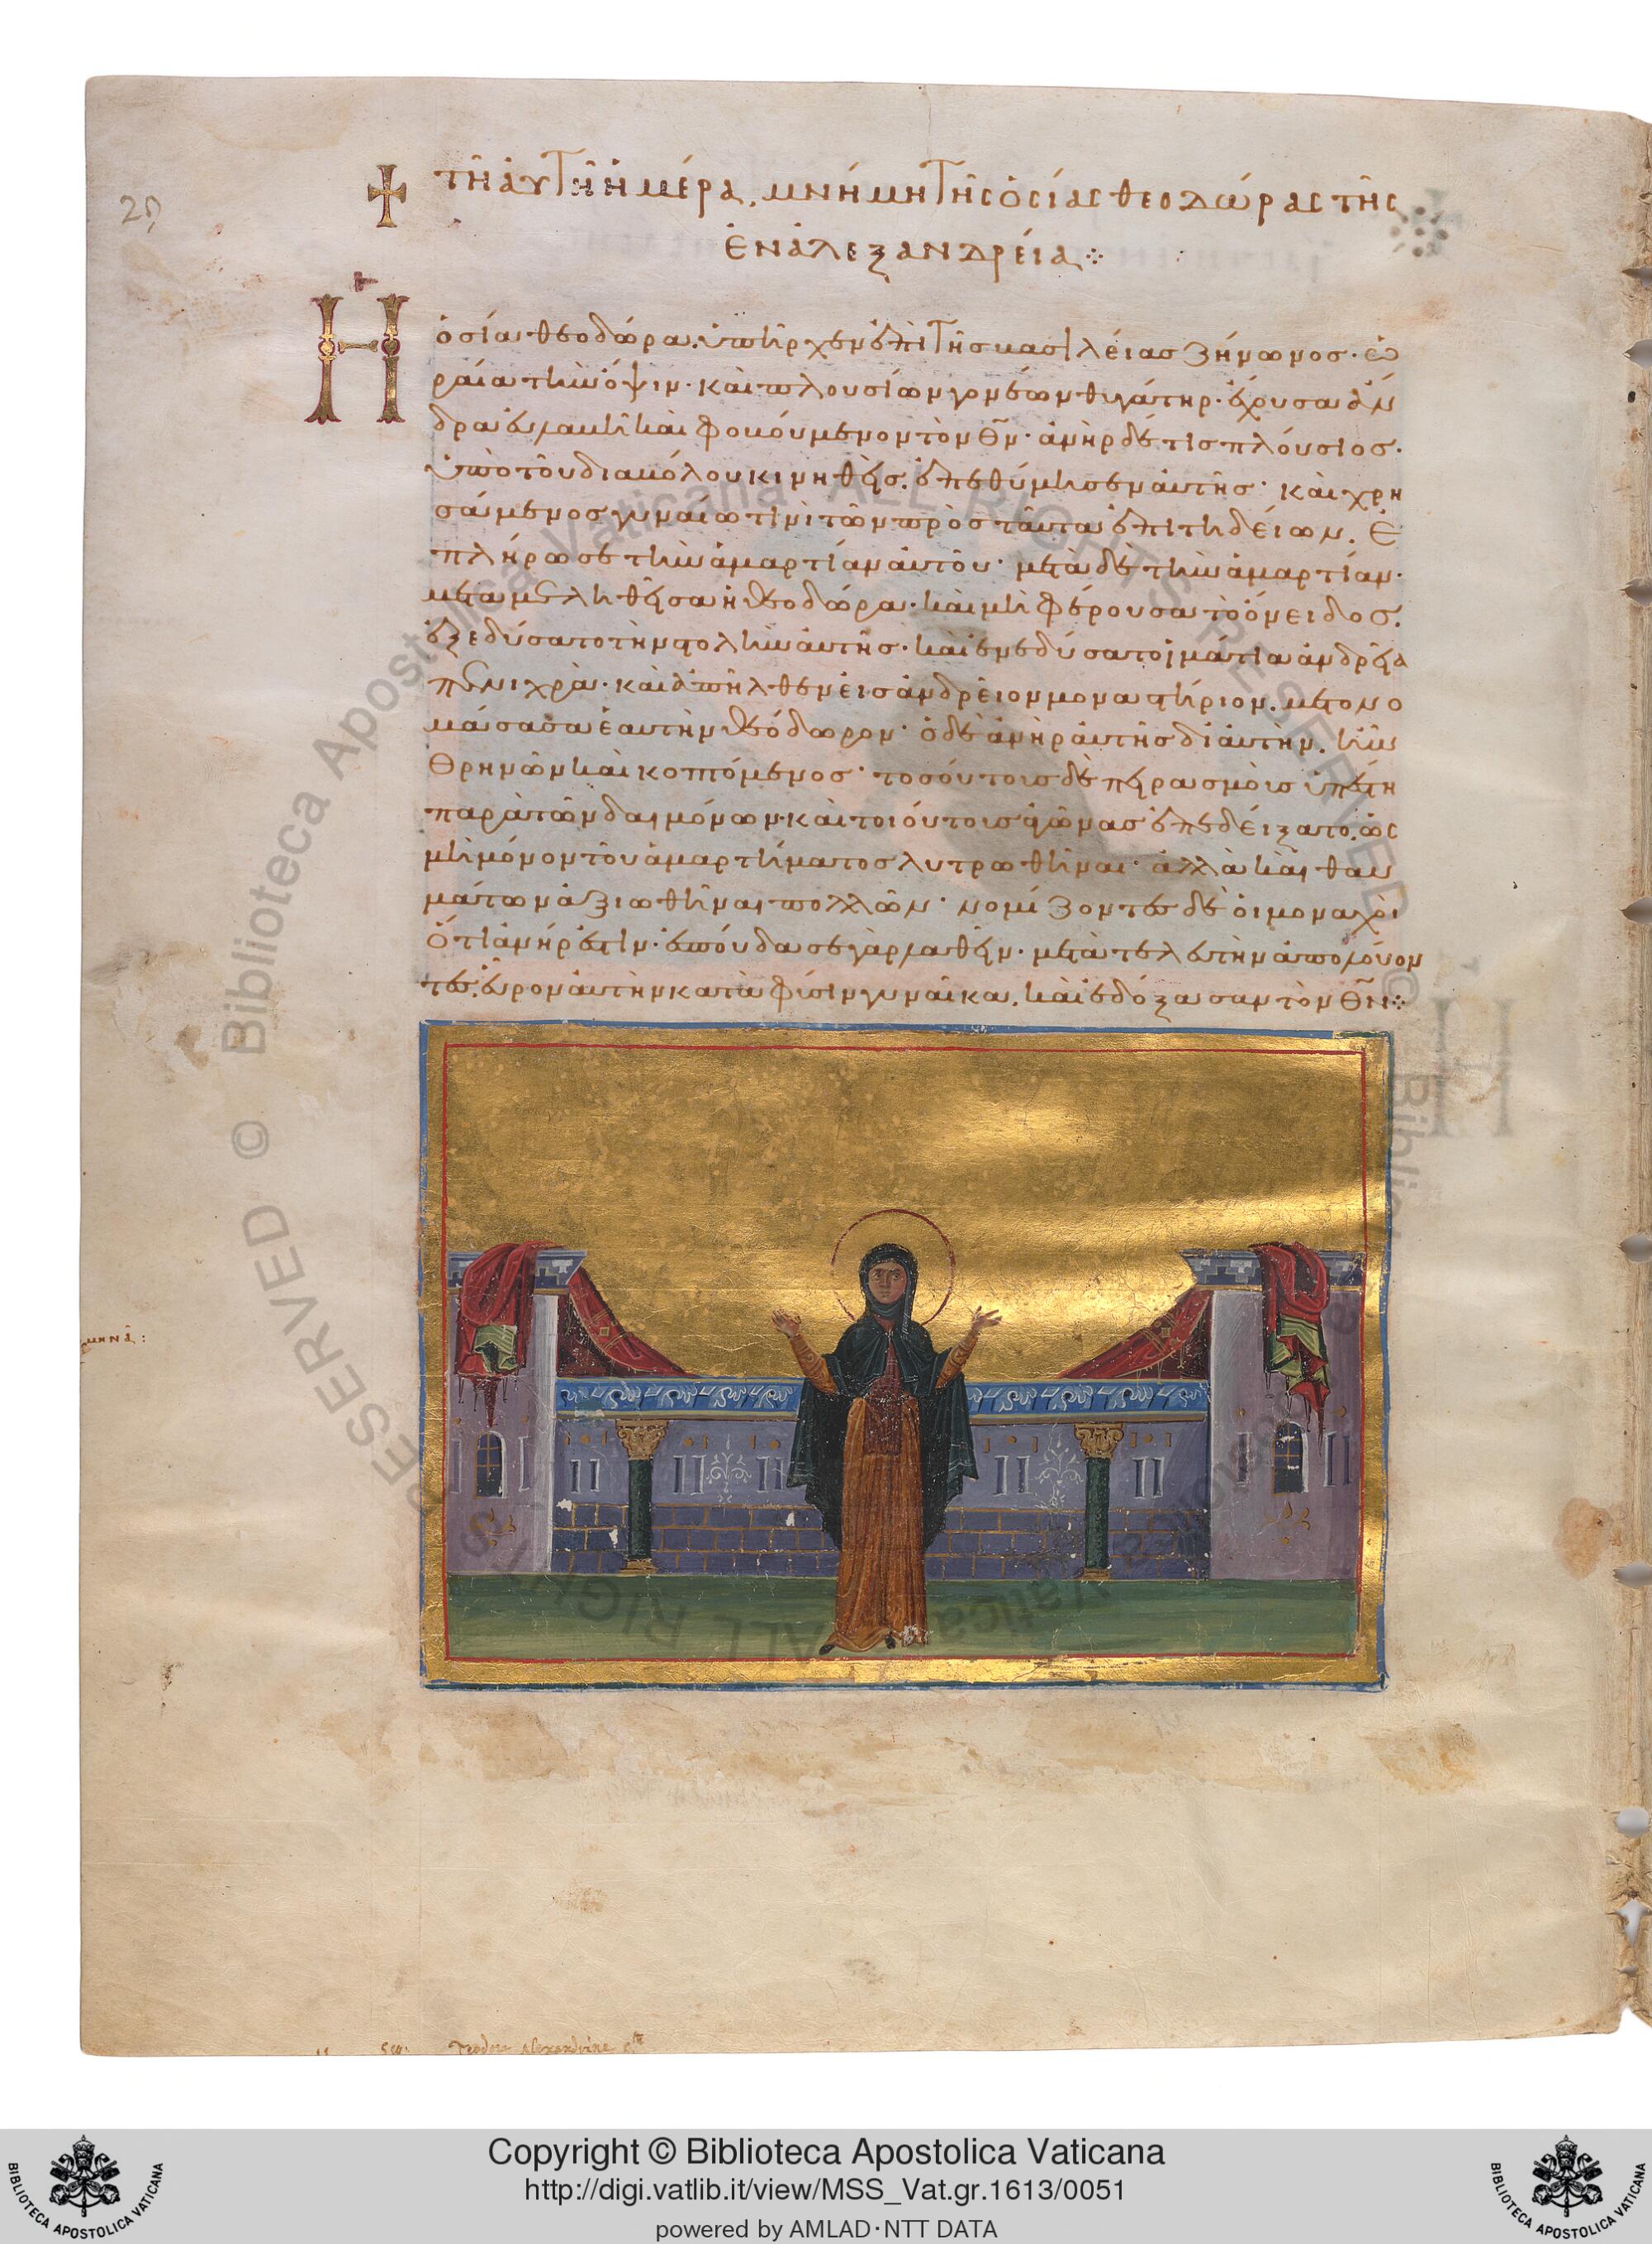 29
τῆ ἀυτῆ ἡμέρα, μνήμη τῆς ὁσίας θεοδώρας τῆς
ἐν ἀλεξανδρεία
Η ὁσία θεοδώρα. ὑπῆρχεν ἐπὶ τῆς βασιλείας ζήνωνος· ὡ
ραία τὴν ὄψιν· καὶ πλουσίων γονέων θυγάτηρ· ἔχουσα ἄν
δρα εὐλαβῆ καὶ φοβούμενον τὸν θ̅ν̅· ἀνὴρ δέ τις πλούσιος·
ὑπὸ τοῦ διαβόλου κινηθείς. ἐπεθύμησεν ἀυτῆς· καὶ χρη
σάμενος γυναίω τινὶ τῶν πρὸς ταῦτα ἐπιτηδείων. ἐ
πλήρωσε τὴν ἁμαρτίαν ἀυτοῦ· μετὰ δὲ τὴν ἁμαρτίαν·
μεταμεληθεῖσα ἡ θεοδώρα· καὶ μὴ φέρουσα τὸ ὄνειδος.
ἐξεδύσατο τὴν στολὴν ἀυτῆς· καὶ ἐνεδύσατο ἱμάτια ἀνδρεῖα
πενιχρὰ· καὶ ἀπῆλθεν εἰς ἀνδρεῖον μοναστήριον. μετονο
μάσασα ἑαυτὴν θεόδωρον· ὁ δὲ ἀνὴρ ἀυτῆς δι ἀυτὴν. ἦν
θρηνῶν καὶ κοπτόμενος· τοσούτοις δὲ πειρασμοῖς ὑπέστη
παρὰ τῶν δαιμόνων· καὶ τοιούτους ἀγῶνας ἐπεδείξατο. ὡς
μὴ μόνον τοῦ ἁμαρτήματος λυτρωθῆναι· ἀλλὰ καὶ θαυ
μάτων ἀξιωθῆναι πολλῶν· νομίζοντες δὲ οἱ μοναχοὶ
ὅτι ἀνήρ ἐστιν· ἐσπούδασε γὰρ λαθεῖν· μετὰ τελευτὴν ἀπολούον
τες. εὗρον ἀυτὴν κατὰ φύσιν γυναῖκα. καὶ ἐδόξασαν τὸν θ̅ν̅
μηνᾶ:
Teodore Alexandrine
© Biblioteca Apostolica Vaticana ALL RIGHTS RESERVED
Copyright © Biblioteca Apostolica Vaticana
http://digi.vatlib.it/view/MSS_Vat.gr.1613/0051
powered by AMLAD·NTT DATA
BIBLIOTECA APOSTOLICA VATICANA
BIBLIOTECA APOSTOLICA VATICANA